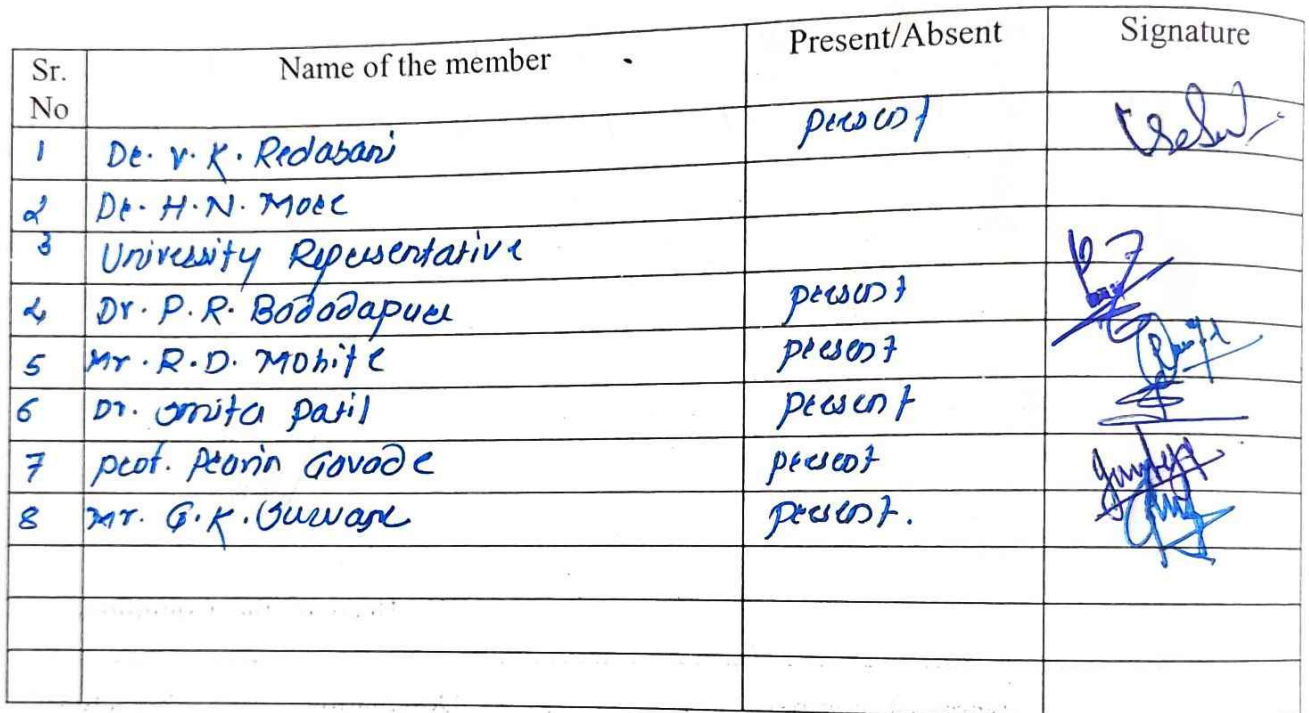 Sr. No Name of the member Present/Absent Signature
1 Dr. V. K. Redasani present
2 Dr. H. N. More
3 University Representative
4 Dr. P. R. present
5 Mr. R. D. Mohite present
6 Dr. Smita Patil present
7 Prof. Govade present
8 Mr. G. K. present.